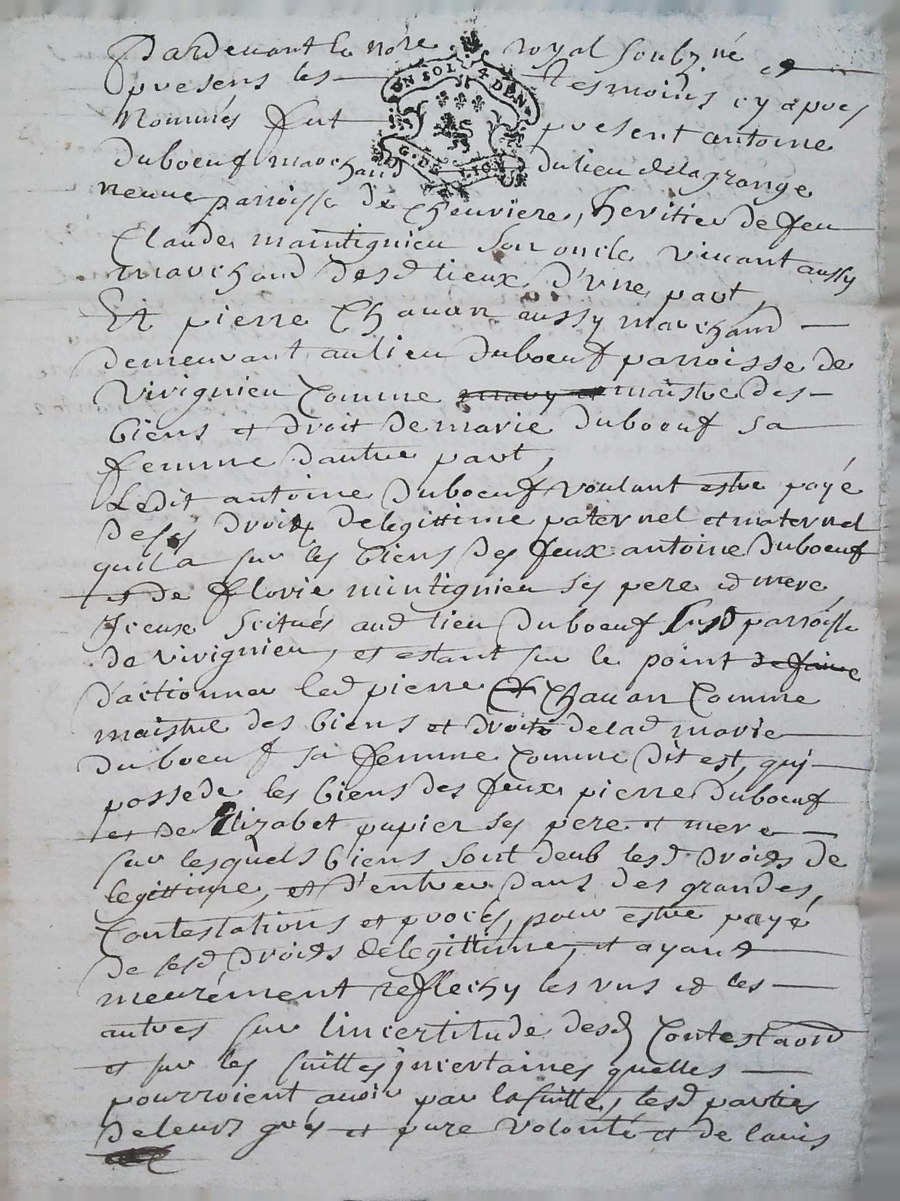 Pardevant le nore royal soubzné et
presens les tesmoins cy apres
nommés fut present antoine
duboeuf marchand du lieu delagrange
neuve parroisse de Cheuviere, heritier de feu
Claude maintignieu son oncle vivant aussy
marchand desd lieux d'une part,
Et pierre Chavan aussy marchand
demeurant au lieu duboeuf parroisse de
Vivignieu Comme maistre des
biens et droit de marie duboeuf sa
femme dautre part,
Ledit antoine duboeuf voulant estre payé
de ses droits delegittime paternel et maternel
quila sur les biens des feux antoine duboeuf
et de florie mintignieu ses pere et mere,
Iceux scitués aud lieu duboeuf susd parroisse
de vivignieu, et estant sur le point de faire
dactionner led pierre Chavan Comme
maistre des biens et droits delad marie
duboeuf sa femme Comme dit est, qui
possede les biens des feux pierre duboeuf
et de Elizabet papier ses pere et mere
sur lesquels biens sont deub lesd droits de
legittime, et d'entrer dans des grandes,
Contestations et procés, pour estre payé
de sesd droits delegittime, et ayant
meurément reflechy les uns et les
autres sur lincertitude desd Contestaons
et sur les suittes incertaines quelles
pourroient avoir par lasuitte, lesd parties
deleurs grés et pure volonté et de lavis
UN SOL 4 DEN
G. DE LION